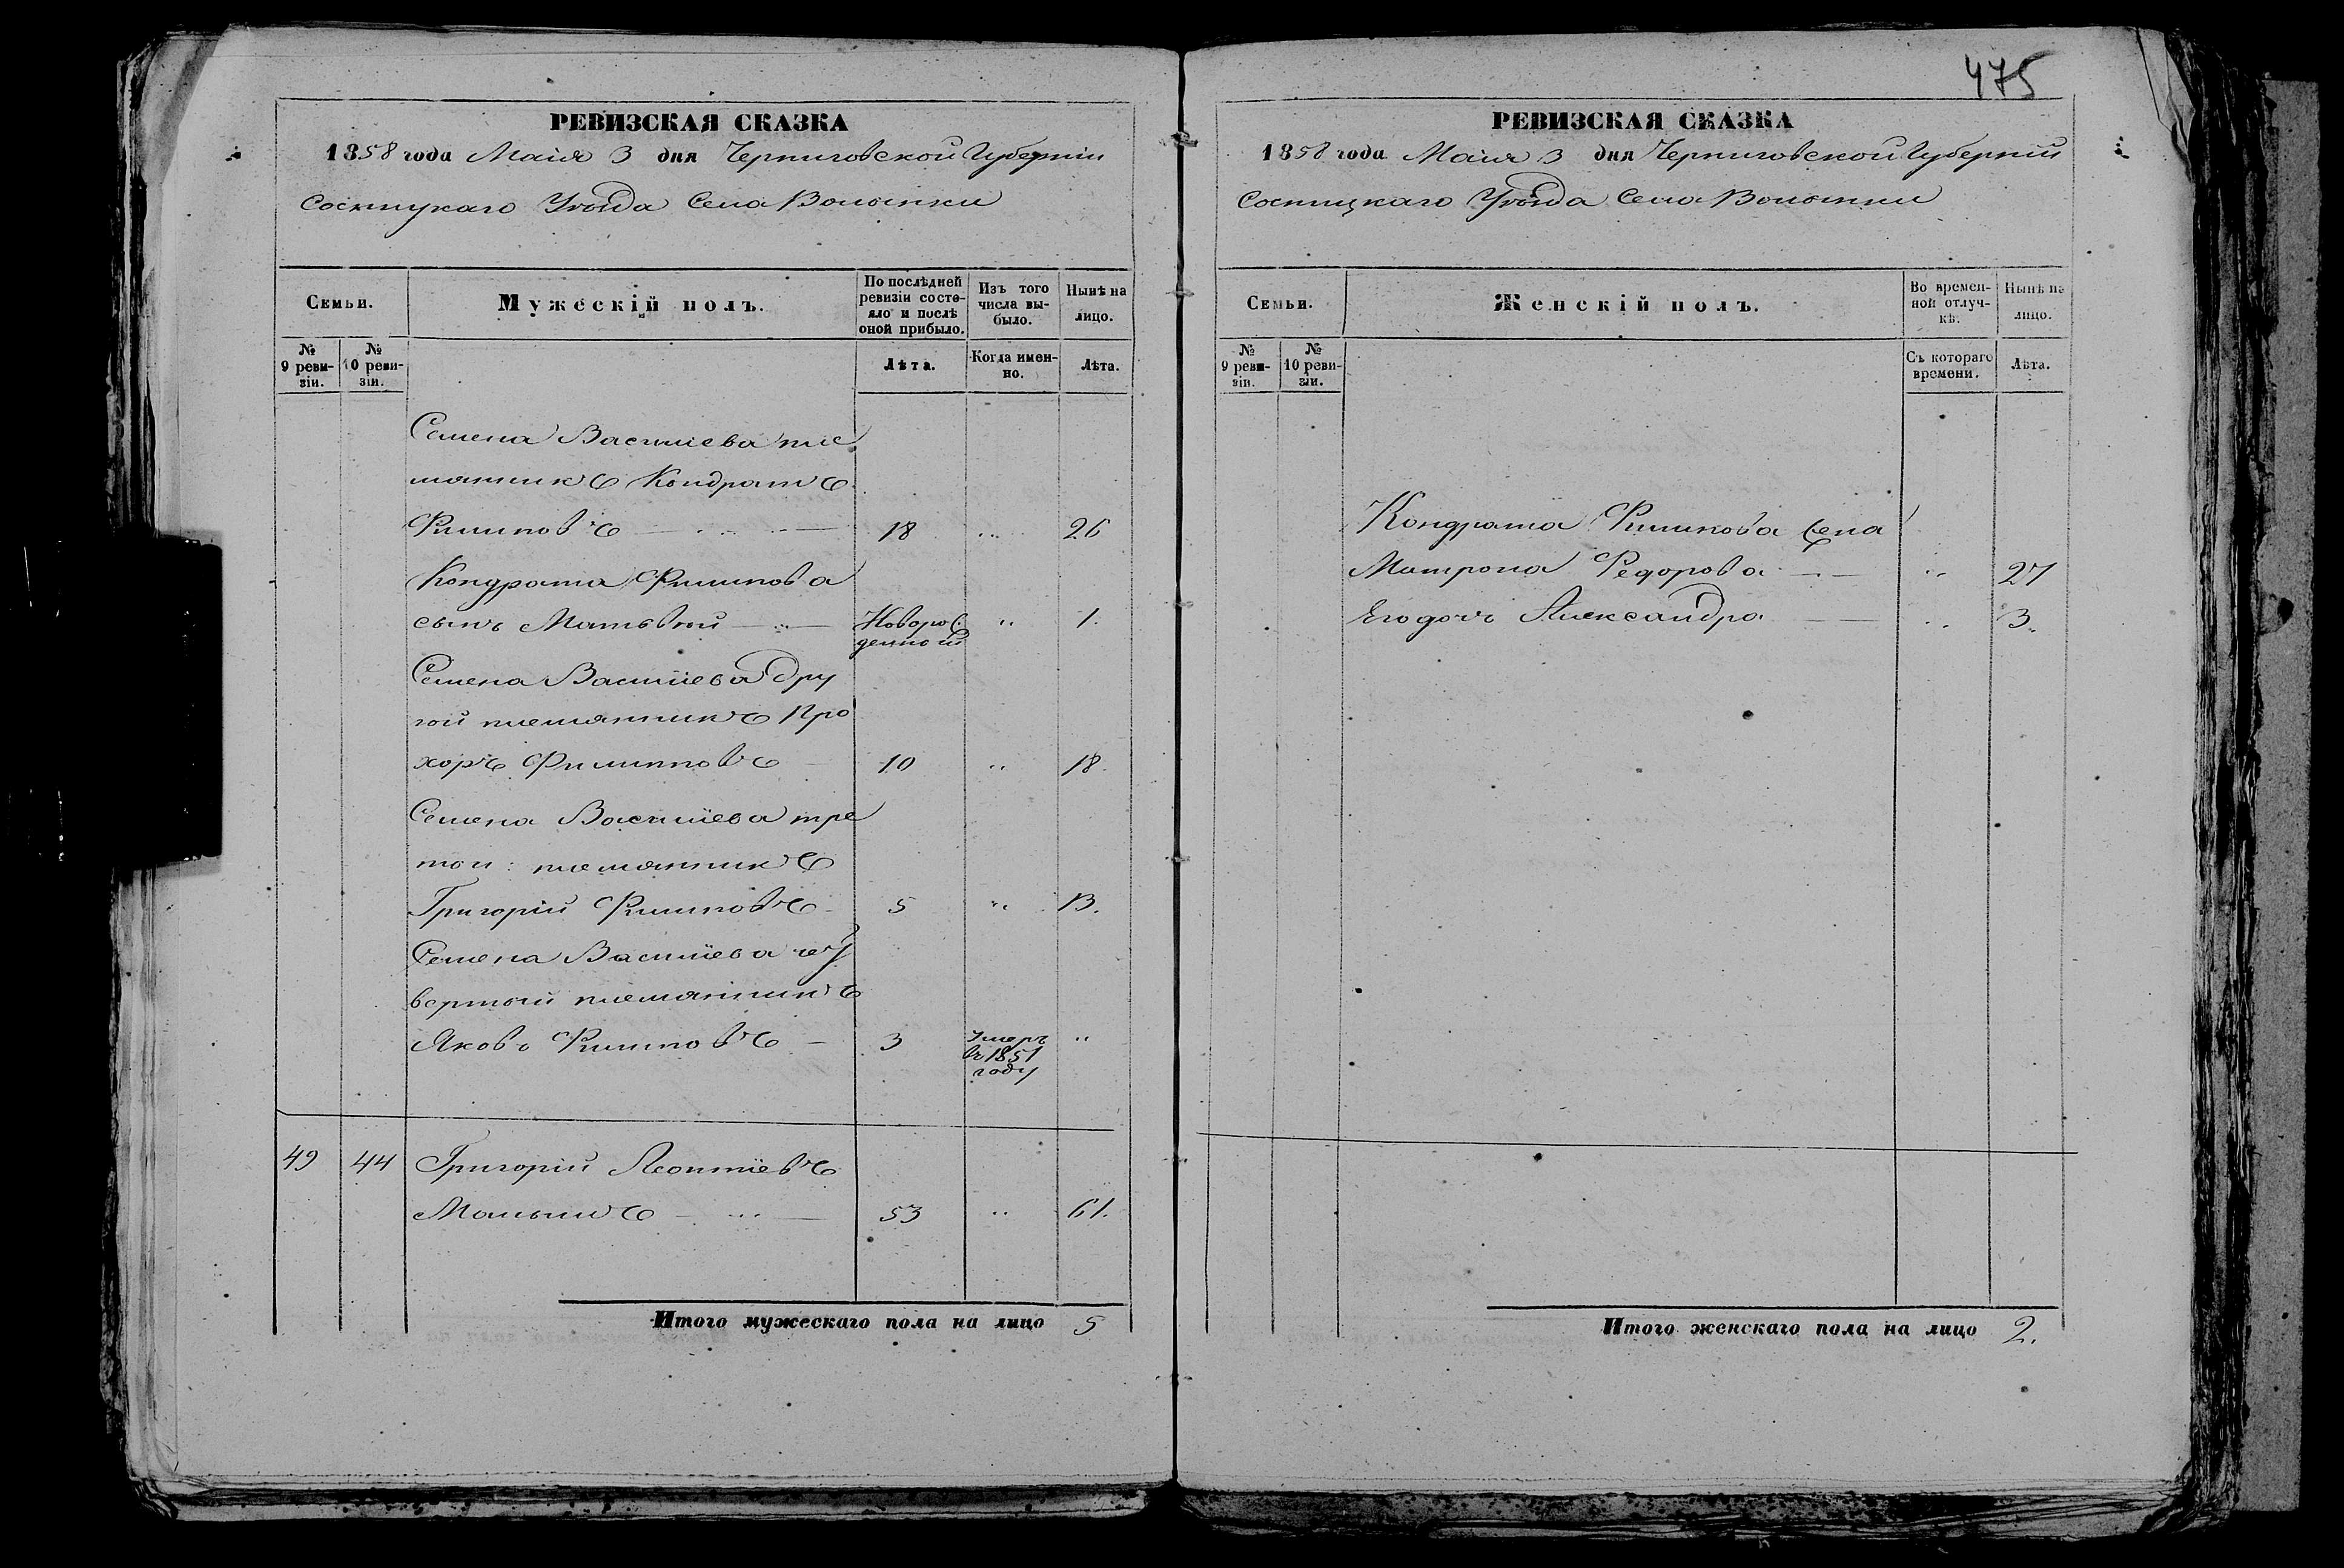 475
РЕВИЗСКАЯ СКАЗКА
1858 года Маія 3 дня Черниговской Губерніи
Сосницкаго Уѣзда Села Волынки
Семьи. Мужескій полъ. По послѣдней ревизіи состояло и послѣ оной прибыло. Изъ того числа выбыло. Нынѣ на лицо.
№ 9 ревизіи. № 10 ревизіи. Лѣта. Когда именно. Лѣта.
Семена Васильева пле
мянникъ Кондратъ
Филиповъ 18 26
Кондрата Филипова
сынъ Матвѣй Новорож
денной 1.
Семена Василіева дру
гой племянникъ Про
хоръ Филиповъ 10 18.
Семена Василіева тре
той: племянникъ
Григорій Филиповъ 5 13.
Семена Василіева чет
вертый племянникъ
Яковъ Филиповъ 3 Умеръ
въ 1851
году
49 44 Григорій Леонтіевъ
53 61.
Итого мужескаго пола на лицо 5
РЕВИЗСКАЯ СКАЗКА
1858 года Маія 3 дня Черниговской Губерніи
Сосницкаго Уѣзда Села Волынки
Семьи. Женскій полъ. Во временной отлучкѣ. Нынѣ на лицо.
№ 9 ревизіи. № 10 ревизіи. Съ котораго времени. Лѣта.
Кондрата Филипова жена
Матрона Федорова 27
Его дочь Александра 3.
Итого женскаго пола на лицо 2.